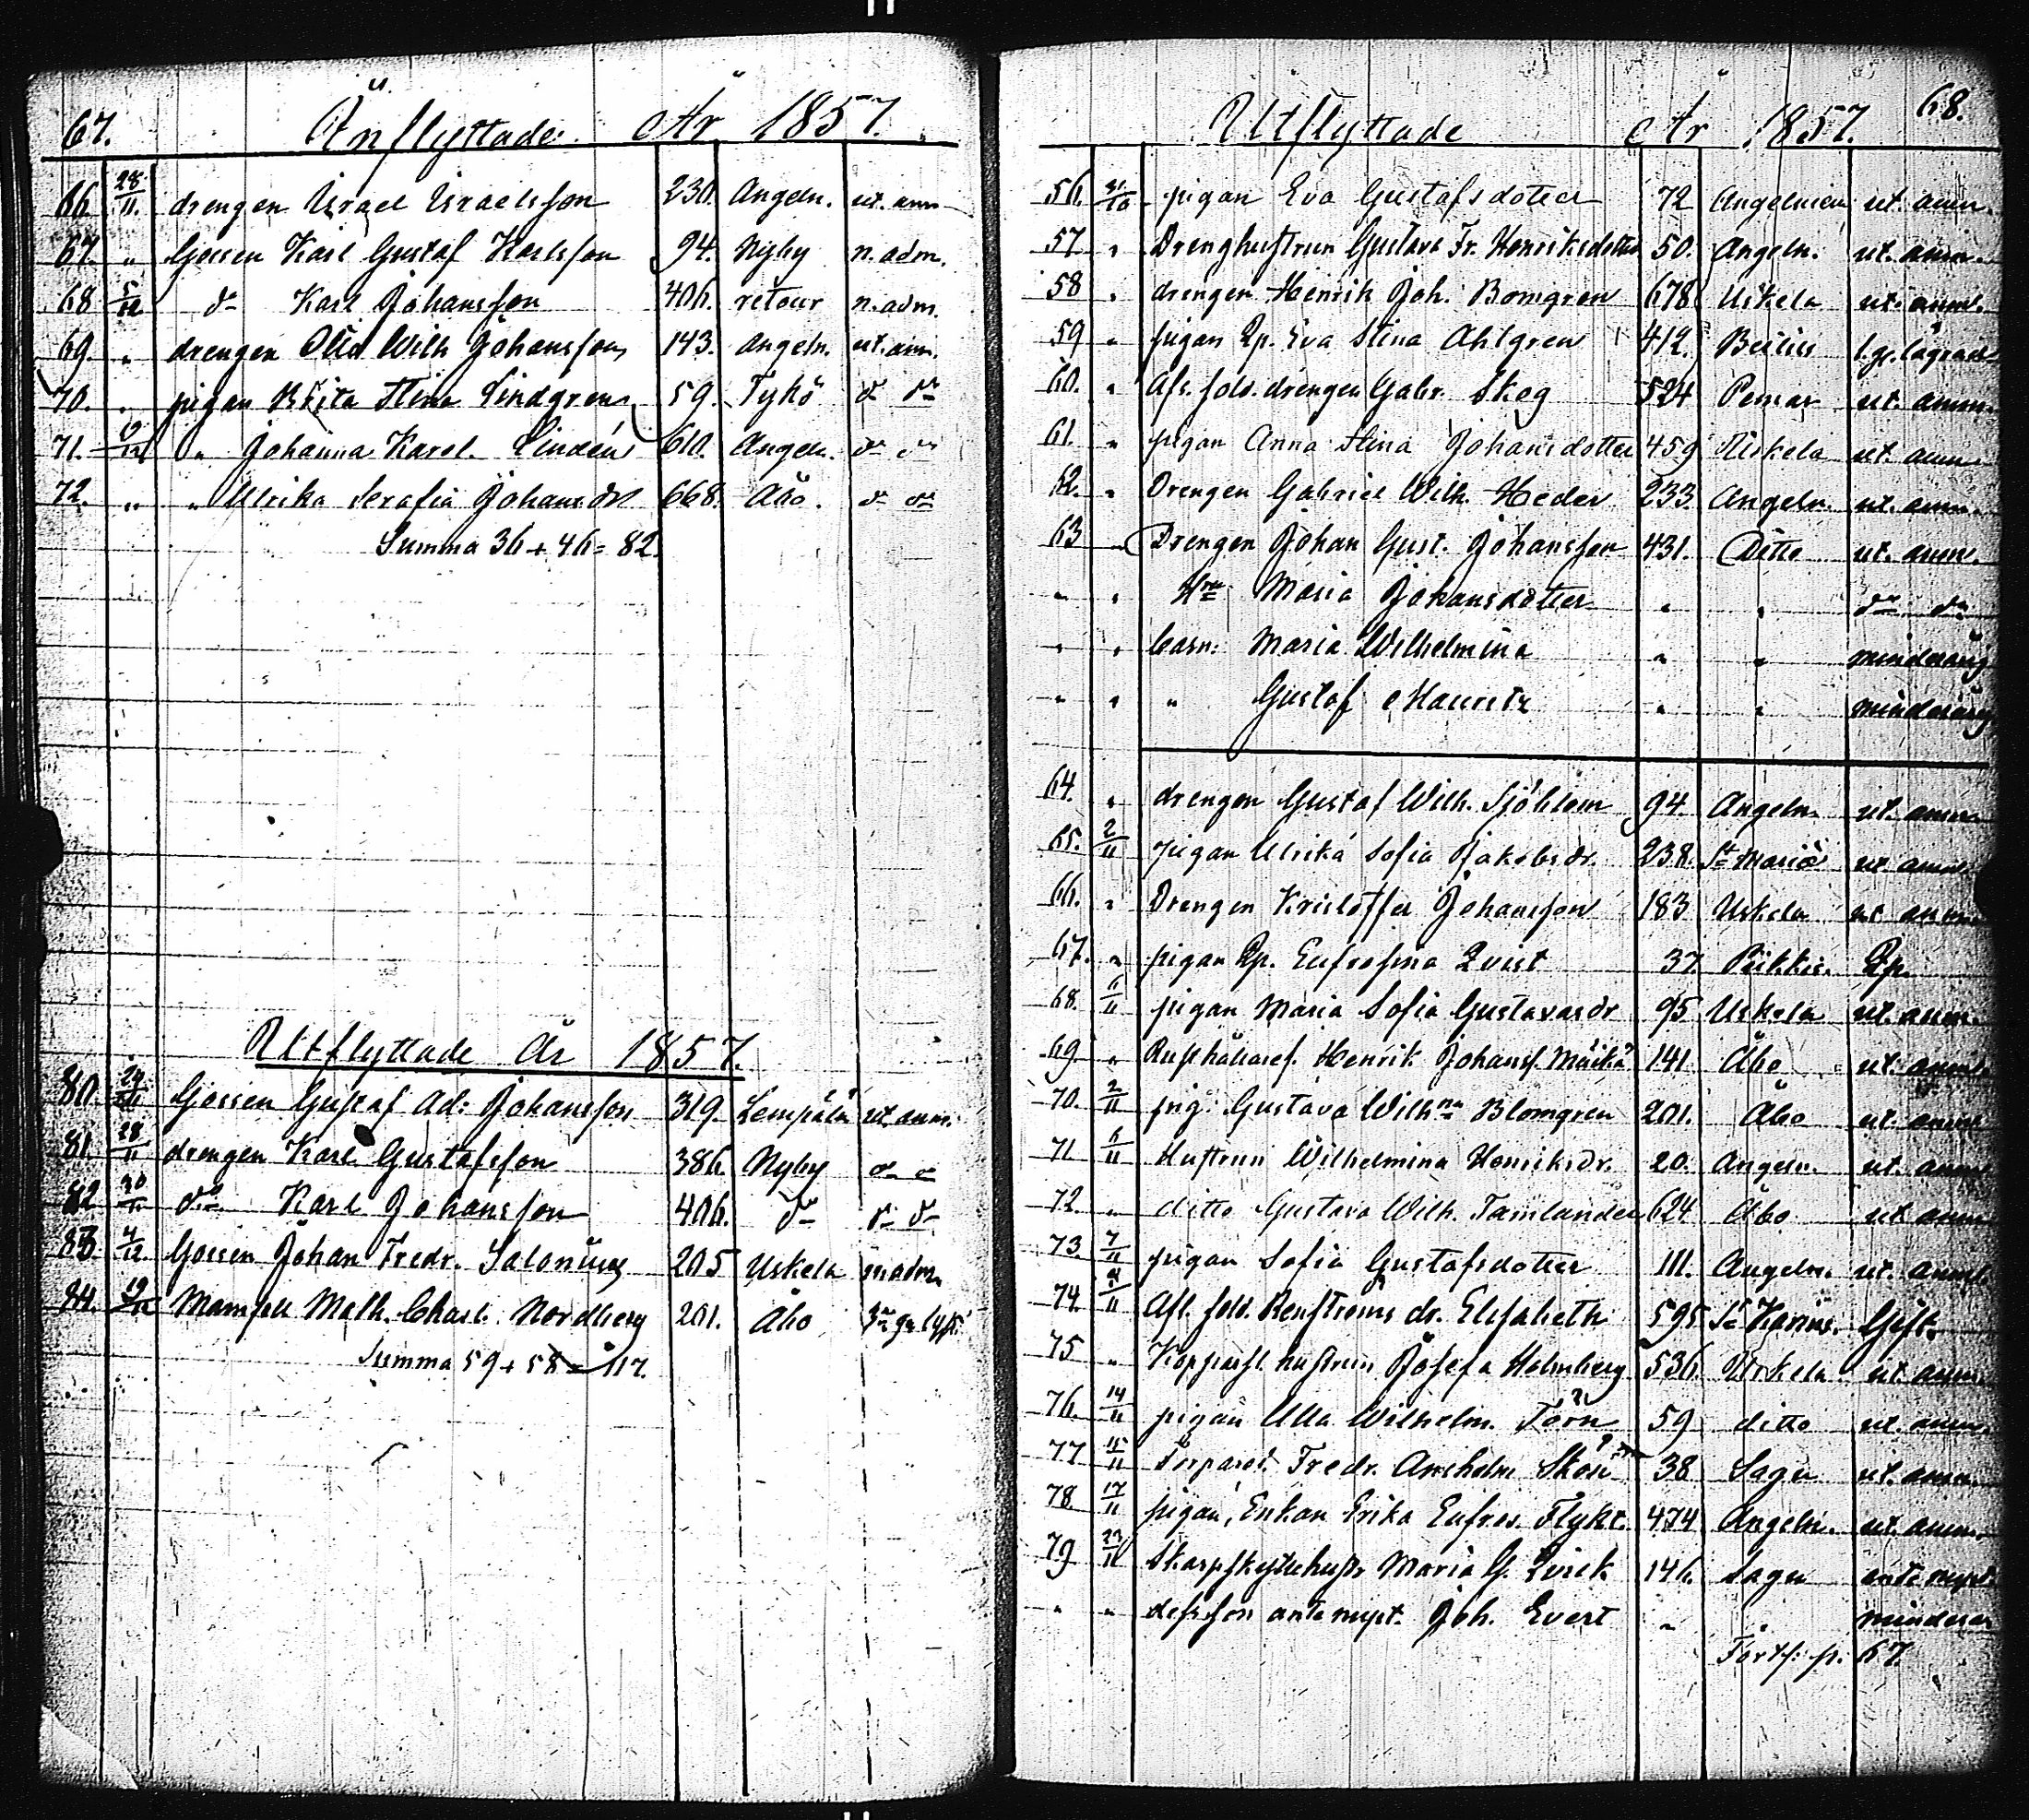 67. Inflyttade År 1857.
66 28/11. drengen Israel Israelsson 230. Angeln. ut. anm
67. " Gossen Karl Gustaf Karlsson 94. Nyby n. adm.
68 5/12 do Karl Johansson 406. retour n. adm.
69. " drengen Otto Wilh Johansson 143. Angeln. ut. anm.
70. " pigan Brita Stina Lindgren 59. Tykö do do
71. 19/12 " Johanna Karol. Lindén 610. Angeln. do do
72. " " Ulrika Serafia Johansdr 668. Åbo. do do
Summa 36 + 46 = 82.
Utflyttade År 1857.
80. 24/11 Gossen Gustaf Ad: Johansson 319 Lempälä ut. anm.
81. 28/11 drengen Karl Gustafsson 386 Nyby do do
82 30/11 do Karl Johansson 406. do do do
83. 4/12 Gossen Johan Fredr. Salonius 205 Uskela n. adm.
84. 19/12 Mamsell Math. Charl. Nordberg 201. Åbo
Summa 59 + 58 = 117.
Utflyttade År 1857. 68.
56. 31/10 pigan Eva Gustafsdotter 72 Angelniemi ut. anm.
57 " Drenghustrun Gustava Fr. Henriksdotter 50. Angeln. ut. anm.
58 " drengen Henrik Joh. Bomgren 678 Uskela ut. anm.
59 " pigan Qp. Eva Stina Ahlgren 412. l. gr. lägrad
60. " Afs. sold. drengen Gabr. Skog 524 Pemar ut. anm.
61. " pigan Anna Stina Johansdotter 459 Uskela ut. anm.
62. " Drengen Gabriel Wilh. Heder 233. Angeln. ut. anm.
63 " Drengen Johan Gust. Johansson 431. Ditto ut. anm.
" " Hru Maria Johansdotter " " do do
" " barn: Maria Wilhelmina " " minderårig
" " " Gustaf Mauritz " " minderårig
64. " drengen Gustaf Wilh. Sjöblom 94. Angeln. ut. anm.
65. 2/11 pigan Ulrika Sofia Jakobsdr. 238. St Mariæ ut. anm.
66. " Drengen Kristoffer Johansson 183 Uskela ut. anm.
67. " pigan Qp. Eufrosina Qvist 37 Piikkis. Qp.
68. 6/11 pigan Maria Sofia Gustavasdr 95 Uskela ut. anm.
69 " Rusthållaref. Henrik Johans. Mäikä 141 Åbo ut. anm.
70. 2/11 pig. Gustava Wilhna Blomgren 201. Åbo ut. anm.
71 6/11 Hustrun Wilhelmina Henriksdr. 20. Angeln. ut. anm.
72. " ditto Gustava Wilh. Tamlander 624 Åbo ut. anm.
73. 7/11 pigan Sofia Gustafsdotter 111. Angeln. ut. anm.
74. Afl. sold. Renströms dr. Elisabeth 595 St Karins. Gift.
75 " Kopparsl. hustrun Josefa Holmberg 536. Uskela ut. anm.
76. 14/11 pigan Ulla Wilhelm. Törn 59 ditto ut. anm.
77 15/11 Torpares. Fredr. Amcholm Skön 38 Sagu ut. anm.
78 17/11 pigan, Enkan Erika Eufros. Flykt. 474 Angeln. ut. anm.
79 23/11 Skarpskyttehustr. Maria G. 146. Sagu ante nupt.
" " dess son ante nupt. Joh. Evert " minderår
Forts: p. 67.